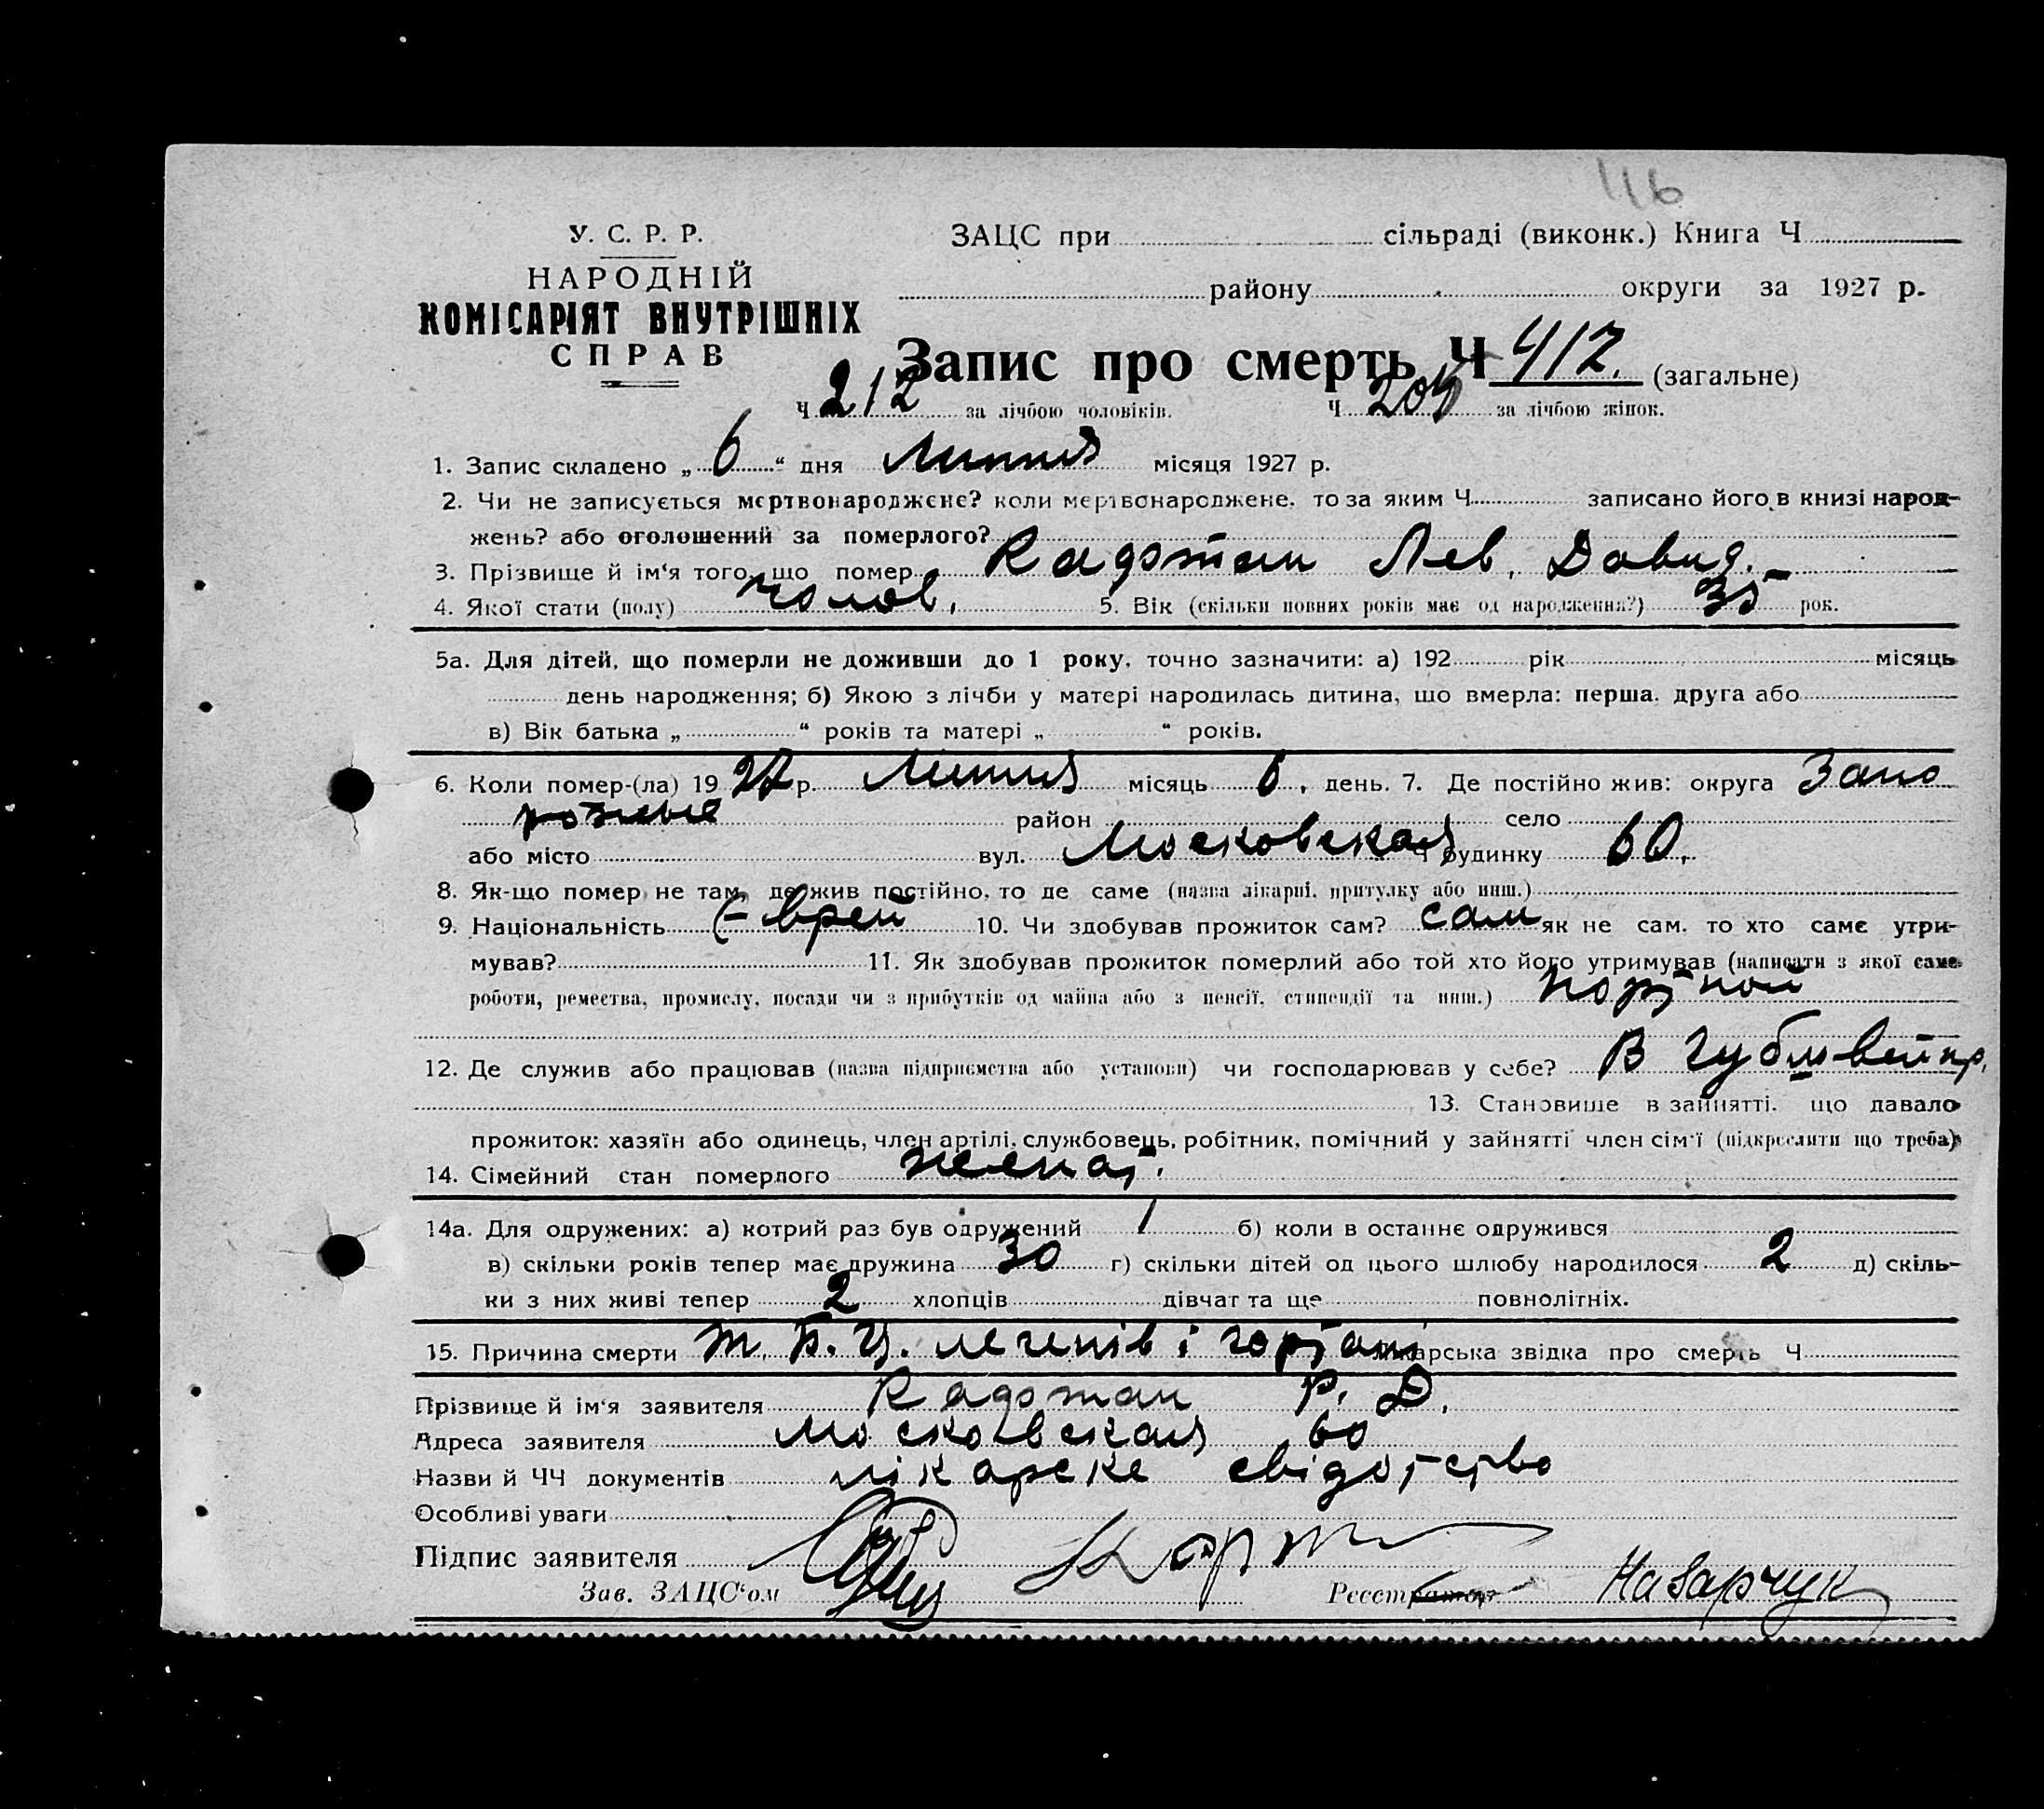 116
У. С. Р. Р.
НАРОДНІЙ
КОМІСАРІЯТ ВНУТРІШНІХ
СПРАВ
ЗАЦС при сільраді (виконк.) Книга Ч
району округи за 1927 р.
Запис про смерть Ч 412. (загальне)
Ч 212 за лічбою чоловіків. Ч за лічбою жінок.
1. Запис складено „ 6 “ дня Липня місяця 1927 р.
2. Чи не записується мертвонароджене? коли мертвонароджене, то за яким Ч записано його в книзі народ-
жень? або оголошений за померлого?
3. Прізвище й ім‘я того, що помер Кадэтан Лев. Давид.
4. Якої стати (полу) Чолов. 5. Вік (скільки повних років має од народження?) 35 рок.
5а. Для дітей, що померли не доживши до 1 року, точно зазначити: а) 192 рік місяць
день народження; б) Якою з лічби у матері народилась дитина, що вмерла: перша, друга або
в) Вік батька „ “ років та матері „ “ років.
6. Коли помер-(ла) 1927 р. Липня місяць 6, день. 7. Де постійно жив: округа Запо
рожье район село
або місто вул. Московская Ч будинку 60.
8. Як-що помер не там, де жив постійно, то де саме (назва лікарні, притулку або инш.)
9. Національність Єврей 10. Чи здобував прожиток сам? сам як не сам, то хто саме утри-
мував? 11. Як здобував прожиток померлий або той хто його утримував (написати з якої саме
роботи, ремества, промислу, посади чи з прибутків од майна або з пенсії, стипендії та инш.) портной
12. Де служив або працював (назва підприємства або установи) чи господарював у себе? В Губшвейпр.
13. Становище в зайнятті, що давало
прожиток: хазяїн або одинець, член артілі, службовець, робітник, помічний у зайнятті член сім‘ї (підкреслити що треба)
14. Сімейний стан померлого женат.
14а. Для одружених: а) котрий раз був одружений 1 б) коли в останнє одружився
в) скільки років тепер має дружина 30 г) скільки дітей од цього шлюбу народилося 2 д) скіль-
ки з них живі тепер 2 хлопців дівчат та ще повнолітніх.
15. Причина смерти т. Б. Ц. легенів і гортані Лікарська звідка про смерть Ч
Прізвище й ім‘я заявителя Кадэтан Р. Д.
Адреса заявителя Московская 60
Назви й ЧЧ документів лікарске свідотство
Особливі уваги
Підпис заявителя
Зав. ЗАЦС‘ом Реєстратор Назарчук